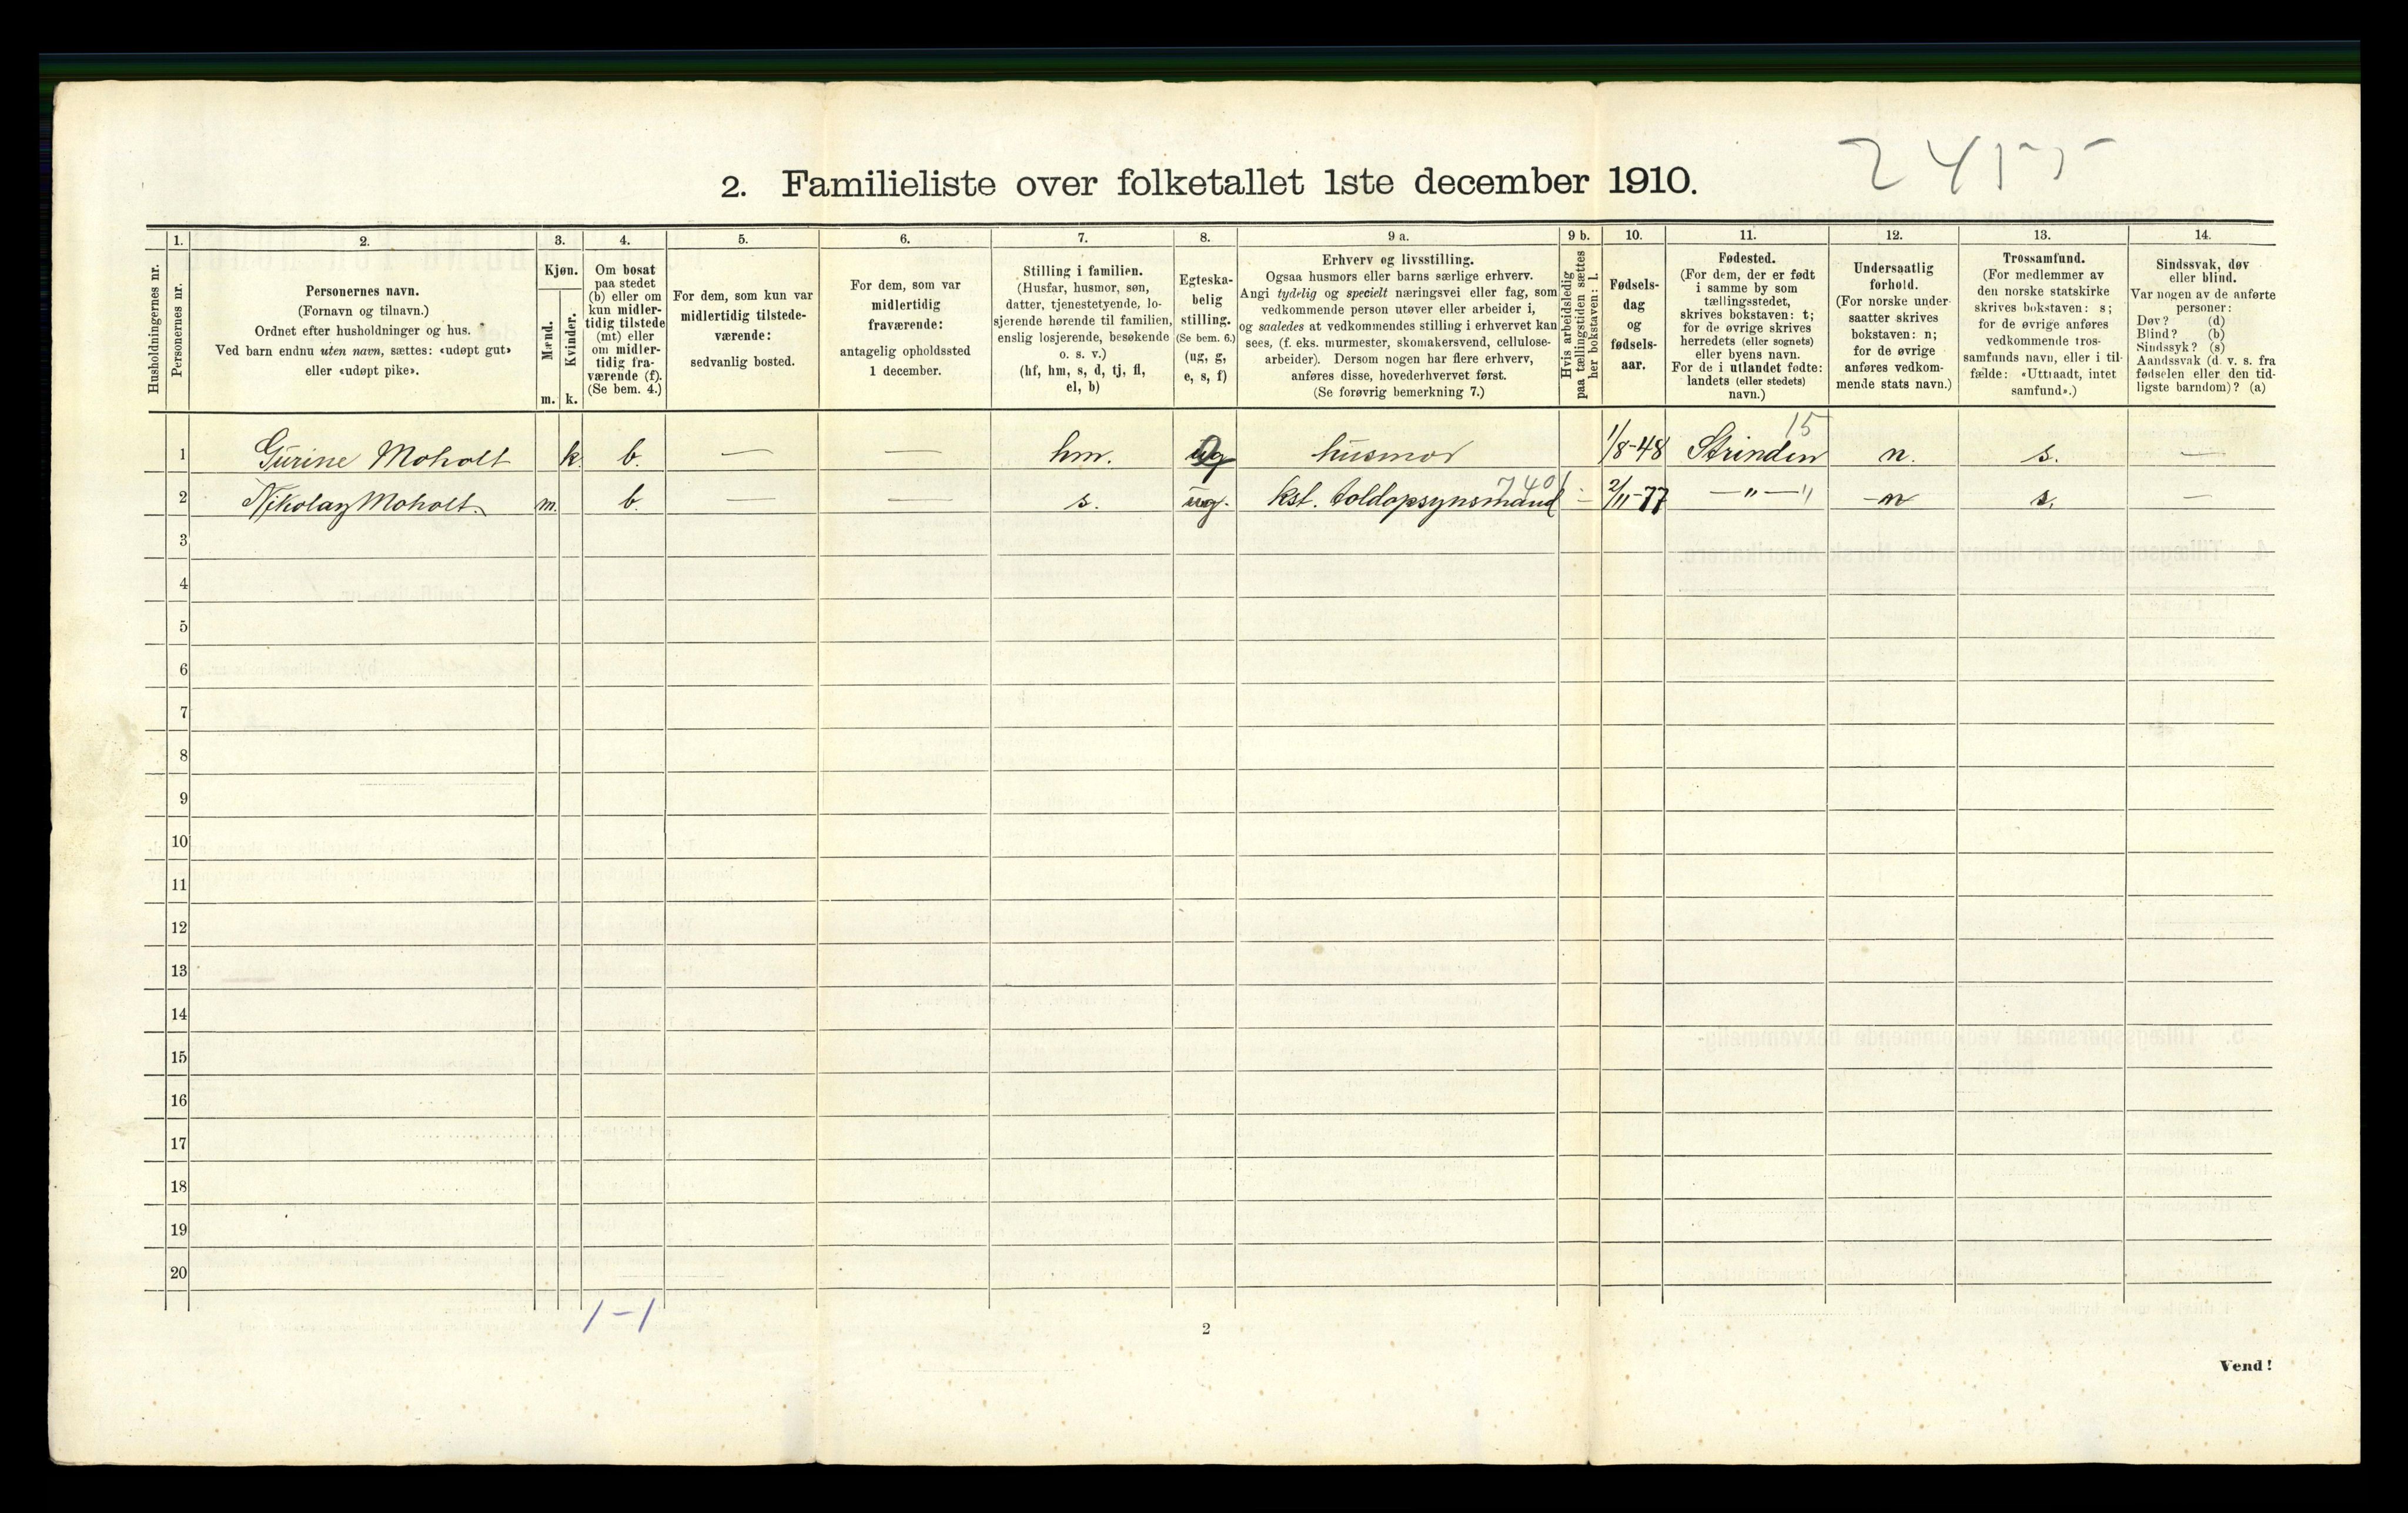 2455
2. Familieliste over folketallet 1ste december 1910.
Husholdningernes nr.
1.
Personernes nr.
2.
Personernes navn.
(Fornavn og tilnavn.)
Ordnet efter husholdninger og hus.
Ved barn endnu uten navn, sættes: «udøpt gut»
eller «udøpt pike».
3.
Kjøn.
Mænd.
Kvinder.
m. k.
4.
Om bosat
paa stedet
(b) eller om
kun midler-
tidig tilstede
(mt) eller
om midler-
tidig fra-
værende (f).
(Se bem. 4.)
5.
For dem, som kun var
midlertidig tilstede-
værende:
sedvanlig bosted.
6.
For dem, som var
midlertidig
fraværende:
antagelig opholdssted
1 december.
7.
Stilling i familien.
(Husfar, husmor, søn,
datter, tjenestetyende, lo-
sjerende hørende til familien,
enslig losjerende, besøkende
o. s. v.)
(hf, hm, s, d, tj, fl,
el, b)
8.
Egteska-
belig
stilling.
(Se bem. 6.)
(ug, g,
e, s, f)
9 a.
Erhverv og livsstilling.
Ogsaa husmors eller barns særlige erhverv.
Angi tydelig og specielt næringsvei eller fag, som
vedkommende person utøver eller arbeider i,
og saaledes at vedkommendes stilling i erhvervet kan
sees, (f. eks. murmester, skomakersvend, cellulose-
arbeider). Dersom nogen har flere erhverv,
anføres disse, hovederhvervet først.
(Se forøvrig bemerkning 7.)
9 b.
Hvis arbeidsledig
paa tællingstiden sættes
her bokstaven: l.
10.
Fødsels-
dag
og
fødsels-
aar.
11.
Fødested.
(For dem, der er født
i samme by som
tællingsstedet,
skrives bokstaven: t;
for de øvrige skrives
herredets (eller sognets)
eller byens navn.
For de i utlandet fødte:
landets (eller stedets)
navn.)
12.
Undersaatlig
forhold.
(For norske under-
saatter skrives
bokstaven: n;
for de øvrige
anføres vedkom-
mende stats navn.)
13.
Trossamfund.
(For medlemmer av
den norske statskirke
skrives bokstaven: s;
for de øvrige anføres
vedkommende tros-
samfunds navn, eller i til-
fælde: «Uttraadt, intet
samfund».)
14.
Sindssvak, døv
eller blind.
Var nogen av de anførte
personer:
Døv? (d)
Blind? (b)
Sindssyk? (s)
Aandssvak (d. v. s. fra
fødselen eller den tid-
ligste barndom)? (a)
15
1 Gurine Moholt k. b. — — hm. husmor 1/8-48 Strinden n. s. —
7401
2 Nikolay Moholt. m. b. — — s. ug. kst. toldopsynsmand - 2/11-77 —"—" n s. —
3
4
5
6
7
8
9
10
11
12
13
14
15
16
17
18
19
20
1-1
2
Vend!